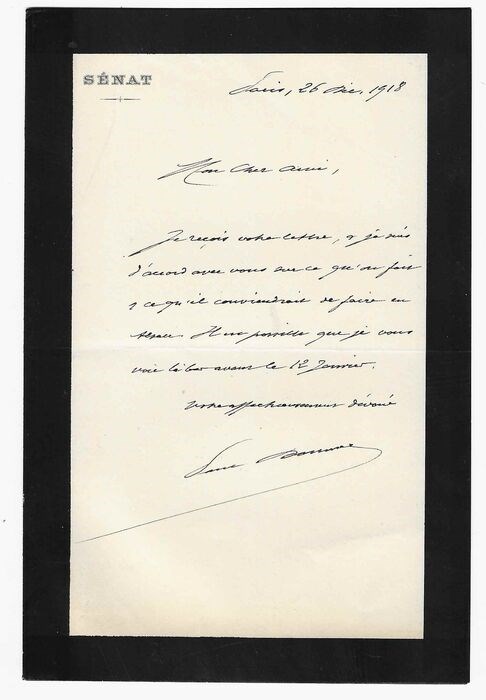 SÉNAT
Paris, 26 Déc. 1918
Mon cher ami,
Je reçois votre lettre, & je suis
d'accord avec vous sur ce qu'on fait
& ce qu'il conviendrait de faire en
Alsace. Il est possible que je vous
voie là-bas avant le 12 Janvier.
Votre affectueusement dévoué
Paul Doumer